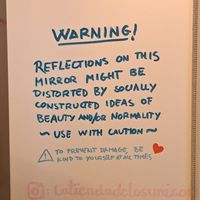 WARNING!
REFLECTIONS ON THIS
MIRROR MIGHT BE
DISTORTED BY SOCIALLY
CONSTRUCTED IDEAS OF
BEAUTY AND/OR NORMALITY
~ USE WITH CAUTION ~
TO PREVENT DAMAGE, BE
KIND TO YOURSELF AT ALL TIMES
: latiendadelosunicor